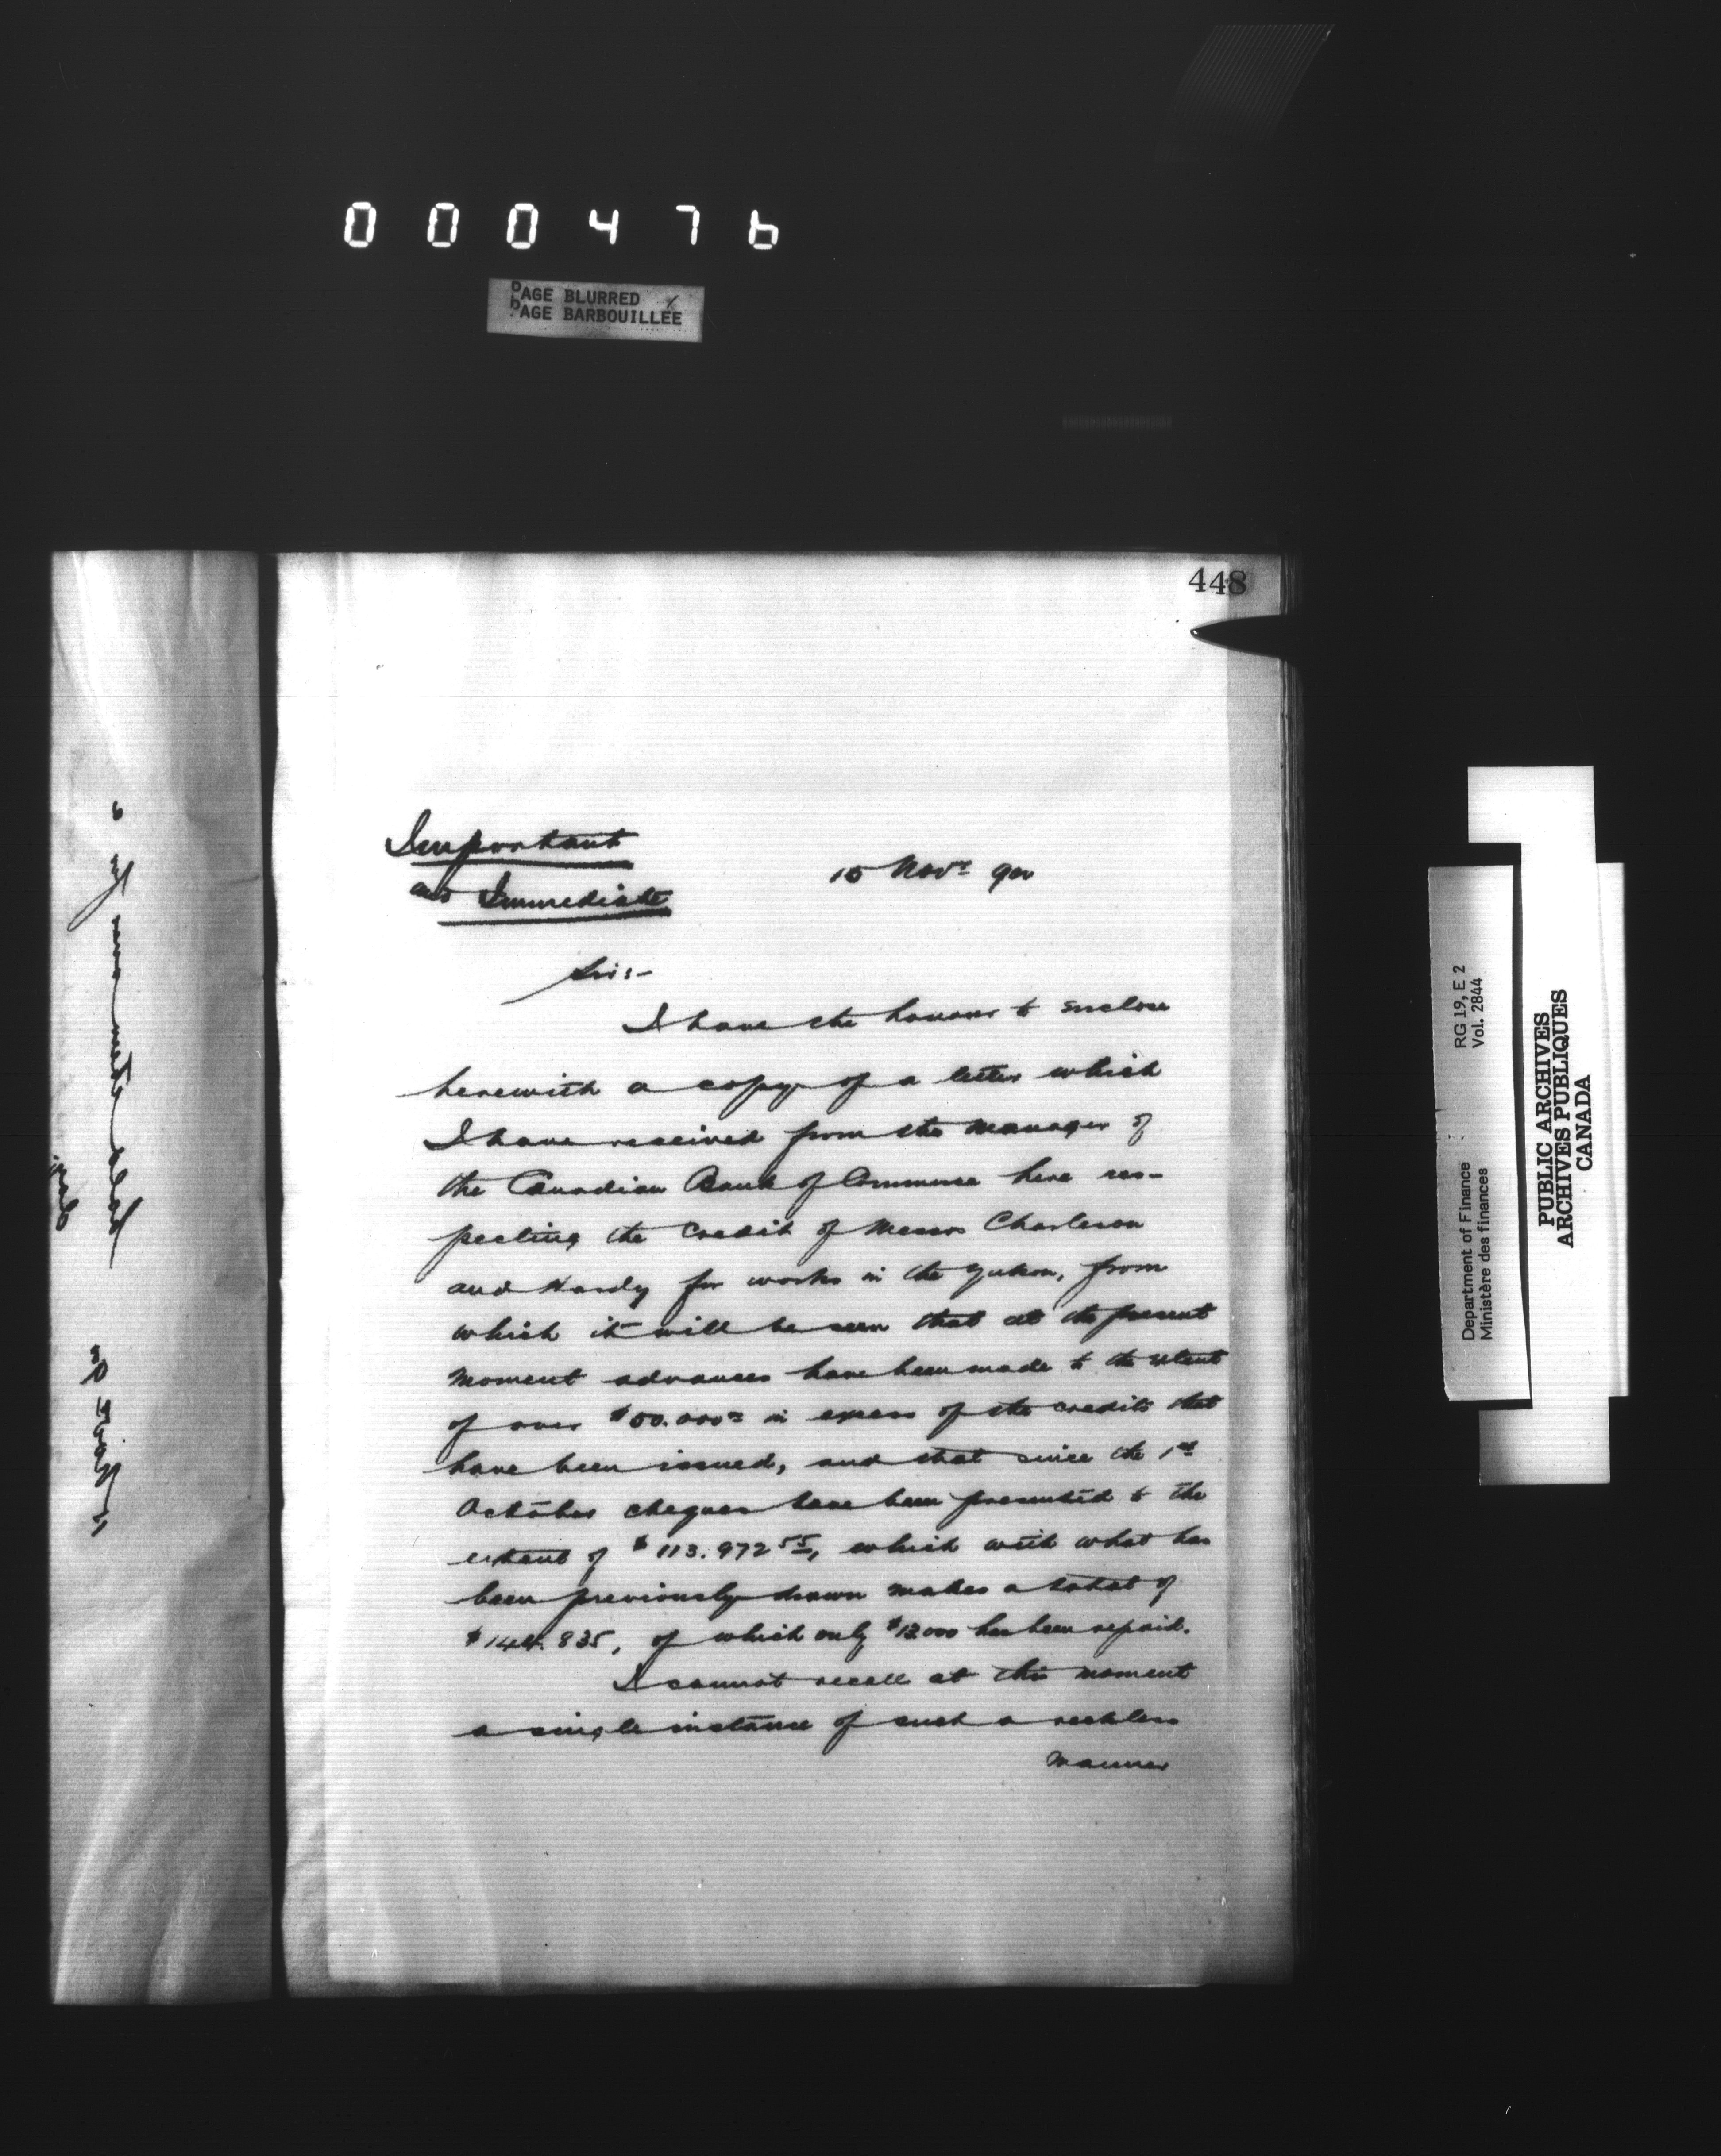 000476
PAGE BLURRED
PAGE BARBOUILLÉE
448
Important
and Immediate
15 Novr 900
Sir:-
I have the honour to enclose
herewith a copy of a letter which
I have received from the Manager of
the Canadian Bank of Commerce here res-
pecting the Credit of Messrs Charleson
and Hardy for works in the Yukon, from
which it will be seen that at the present
moment advances have been made to the extent
of over $50.000 in excess of the credits that
have been issued, and that since the 1st
October cheques have been presented to the
extent of $113.972 55, which with what has
been previously drawn makes a total of
$144.835, of which only $12000 has been repaid.
I cannot recall at this moment
a single instance of such a reckless
manner
RG 19, E 2
Vol. 2844
Department of Finance
Ministère des finances
PUBLIC ARCHIVES
ARCHIVES PUBLIQUES
CANADA